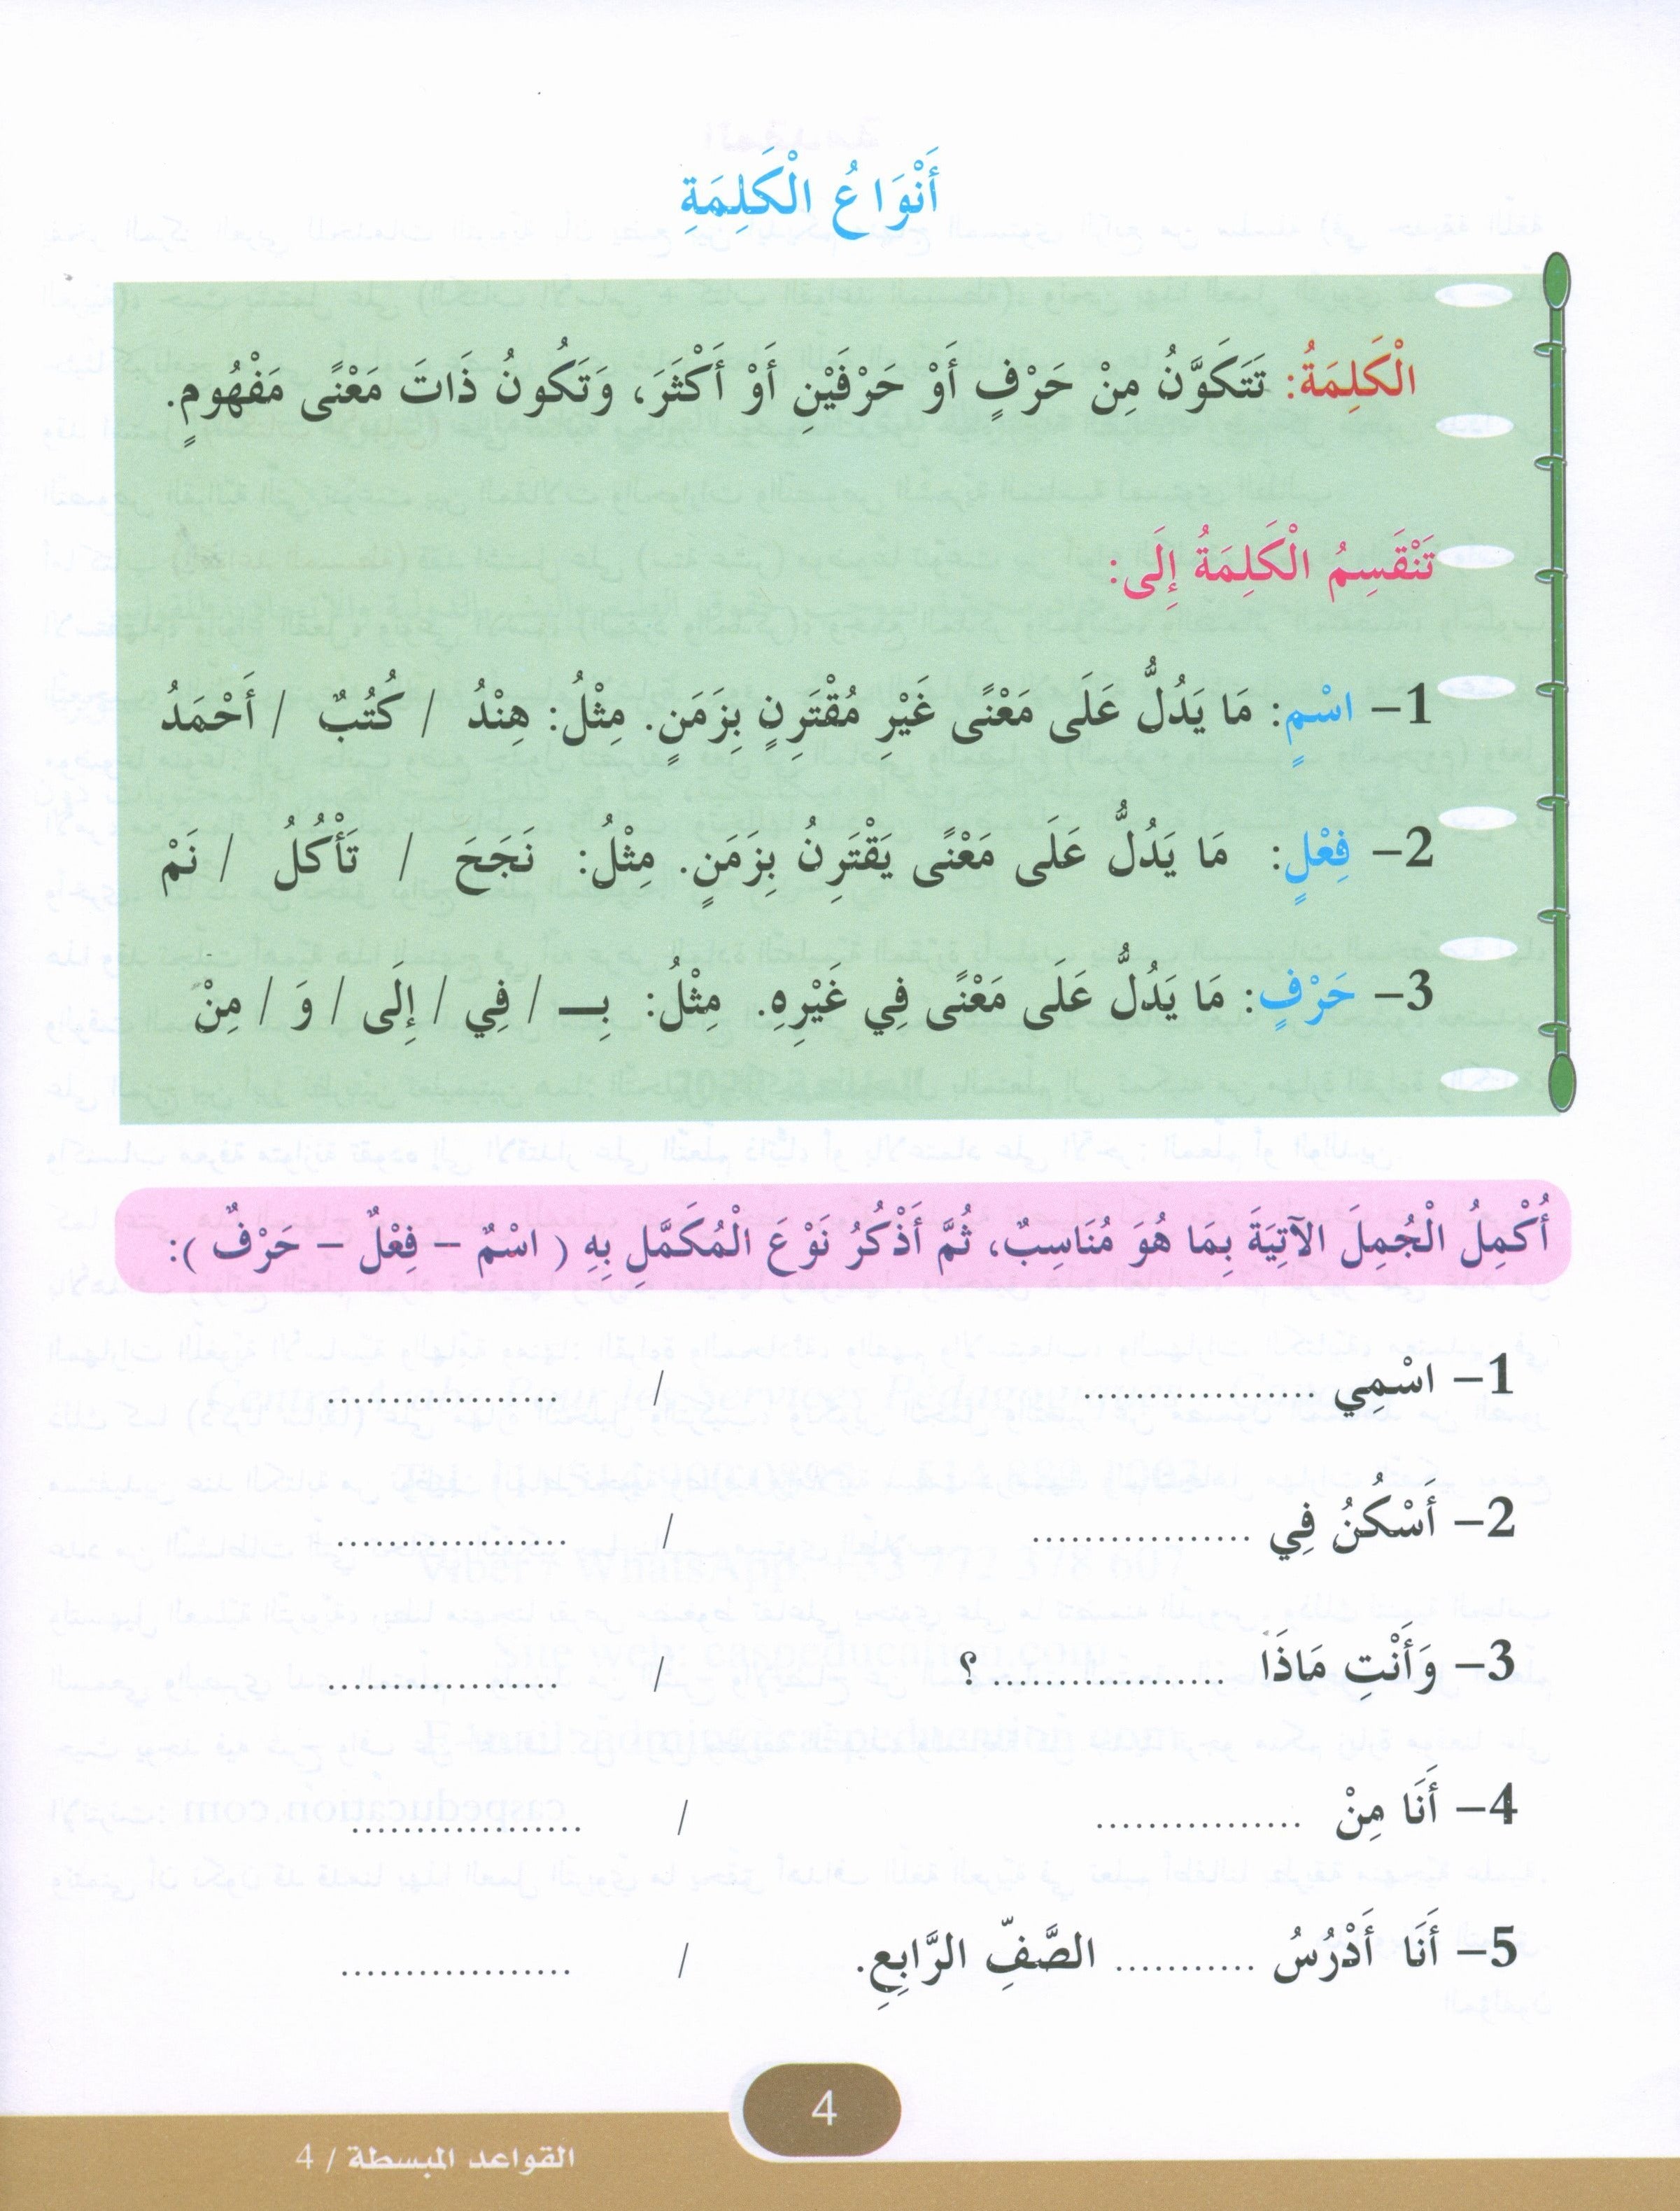 أَنْوَاعُ الْكَلِمَةِ
الْكَلِمَةُ: تَتَكَوَّنُ مِنْ حَرْفٍ أَوْ حَرْفَيْنِ أَوْ أَكْثَرَ، وَتَكُونُ ذَاتَ مَعْنًى مَفْهُومٍ.
تَنْقَسِمُ الْكَلِمَةُ إِلَى:
1– اسْمٍ: مَا يَدُلُّ عَلَى مَعْنًى غَيْرِ مُقْتَرِنٍ بِزَمَنٍ. مِثْلُ: هِنْدُ / كُتُبٌ / أَحْمَدُ
2– فِعْلٍ: مَا يَدُلُّ عَلَى مَعْنًى يَقْتَرِنُ بِزَمَنٍ. مِثْلُ: نَجَحَ / تَأْكُلُ / نَمْ
3– حَرْفٍ: مَا يَدُلُّ عَلَى مَعْنًى فِي غَيْرِهِ. مِثْلُ: بِـــ / فِي / إِلَى / وَ / مِنْ
أُكْمِلُ الْجُمِلَ الآتِيَةَ بِمَا هُوَ مُنَاسِبٌ، ثُمَّ أَذْكُرُ نَوْعَ الْمُكَمَّلِ بِهِ ( اسْمٌ – فِعْلٌ – حَرْفٌ ):
1– اسْمِي .................. / ..................
2– أَسْكُنُ فِي ................. / ..................
3– وَأَنْتِ مَاذَا .................. ؟ / ..................
4– أَنَا مِنْ ................ / ..................
5– أَنَا أَدْرُسُ ........... الصَّفِّ الرَّابِعِ. / ..................
4
القواعد المبسطة / 4